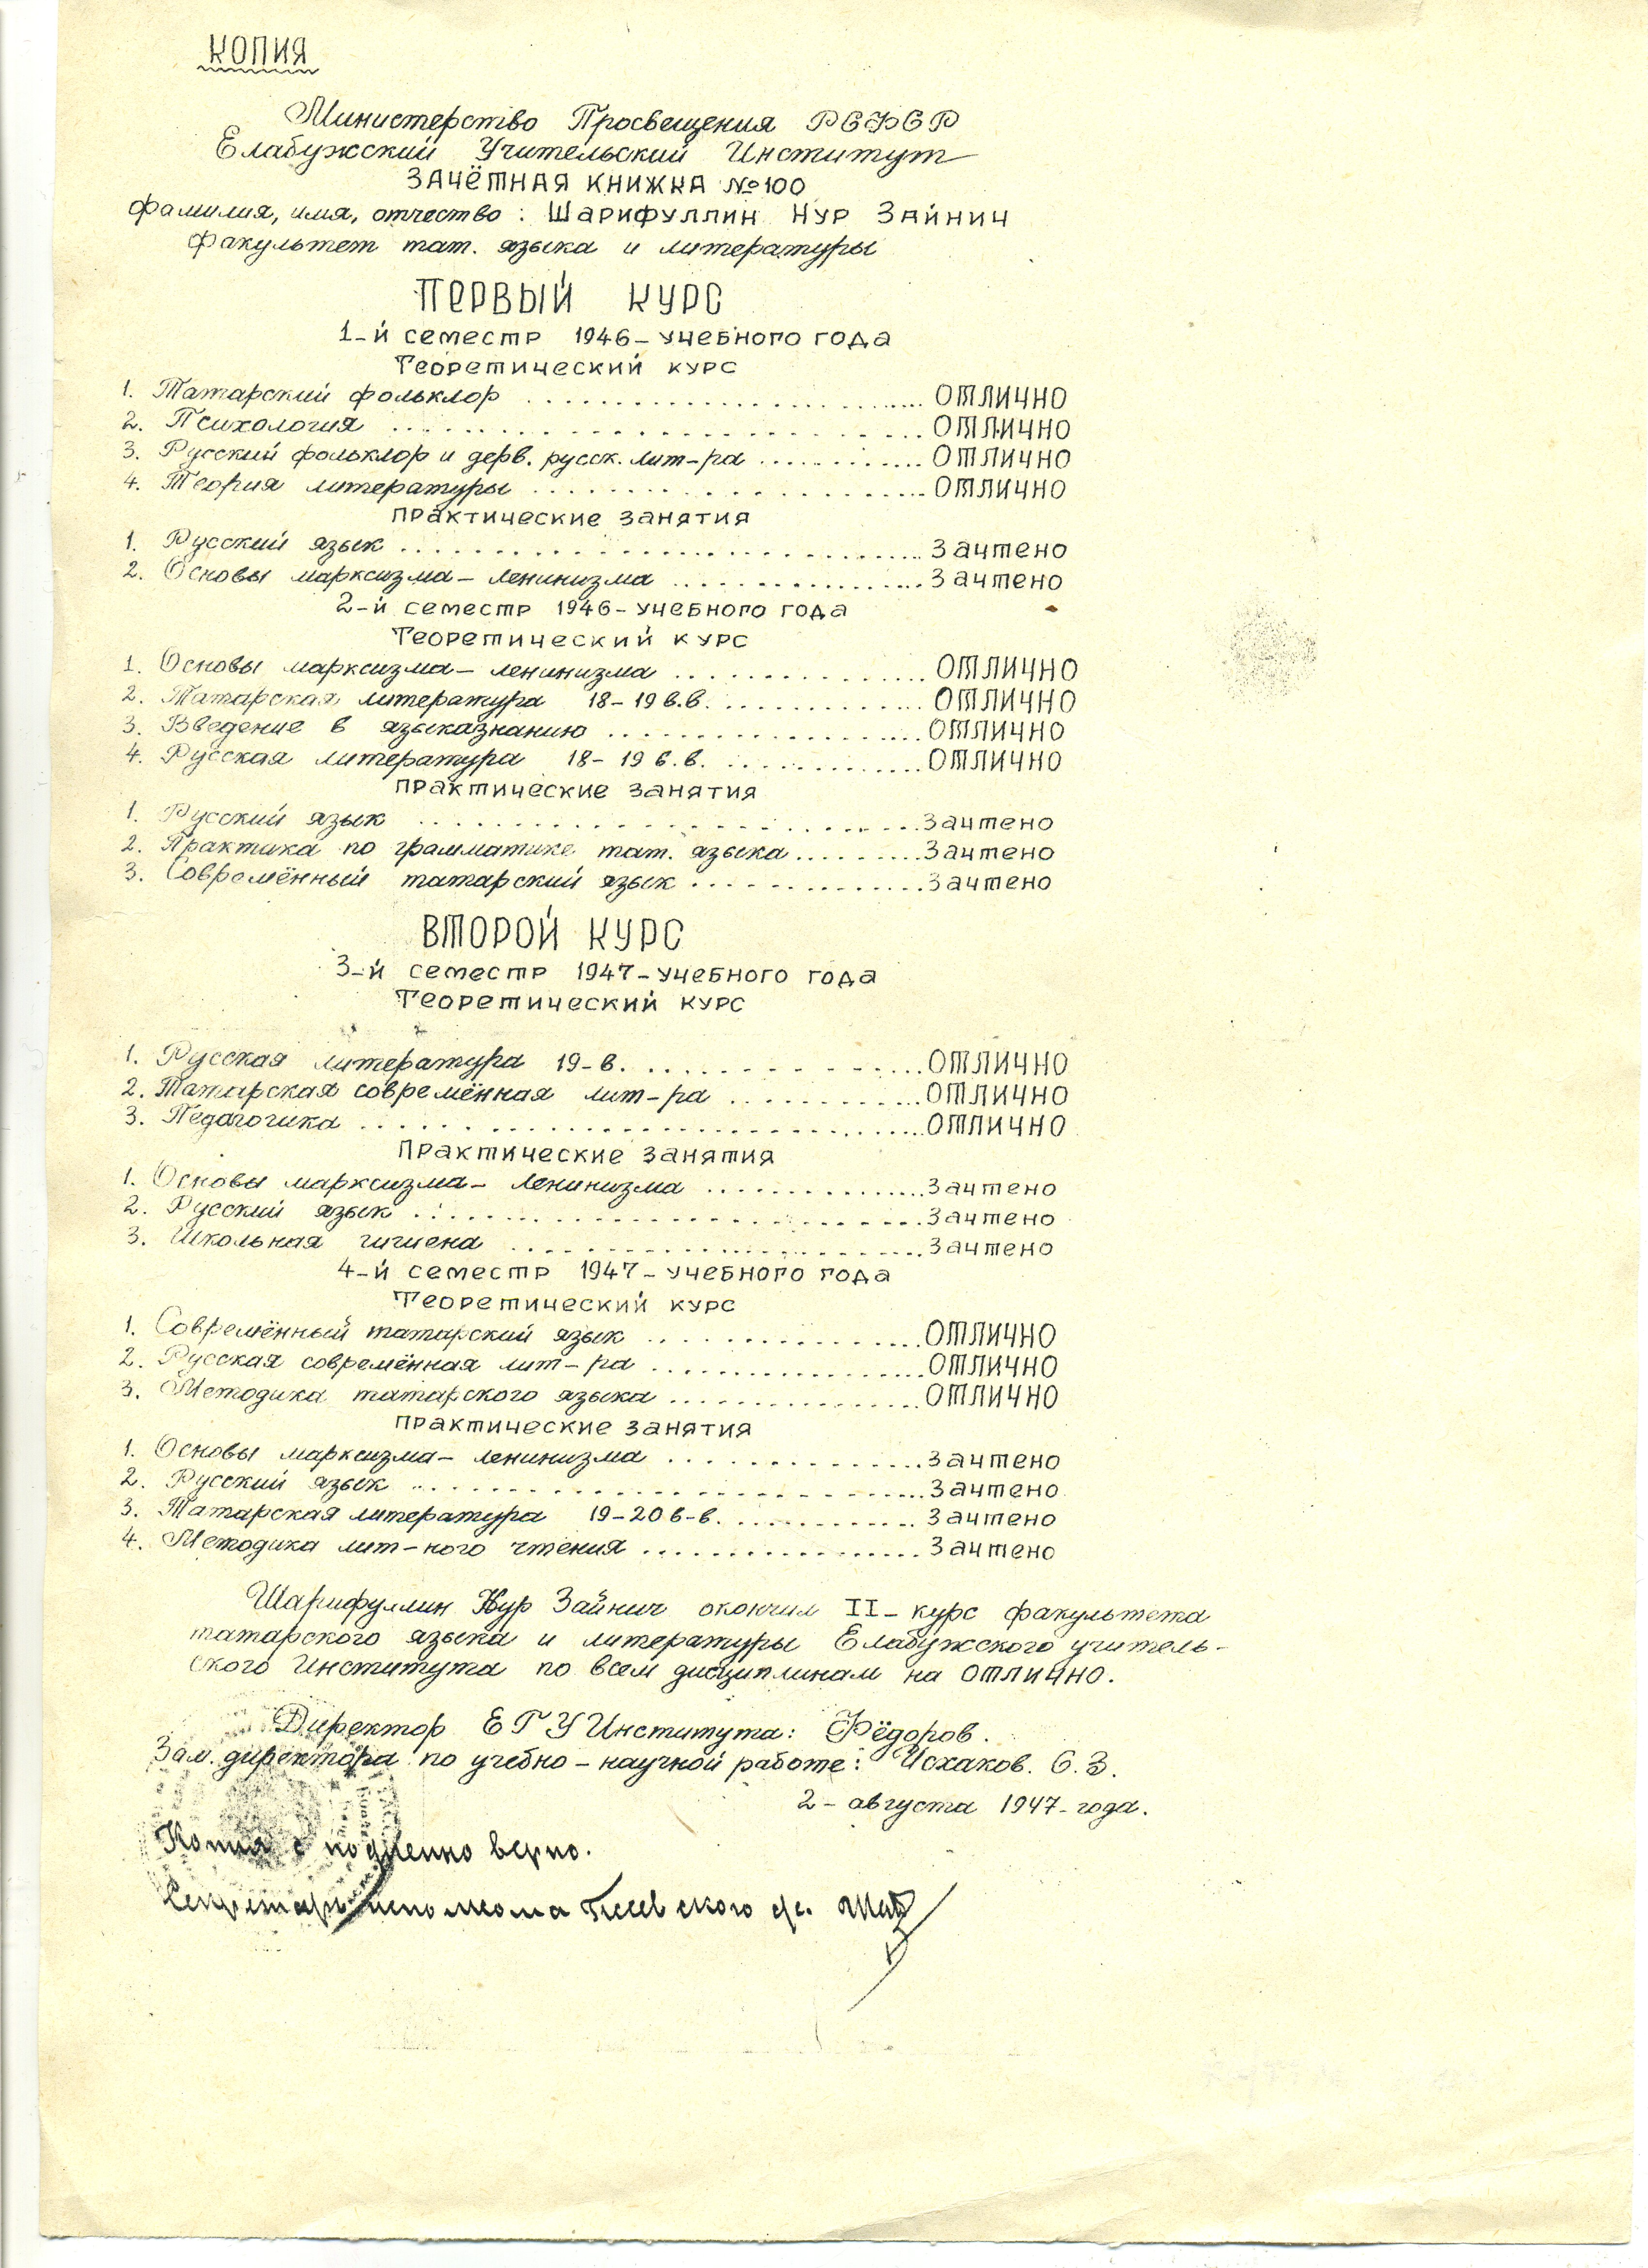 КОПИЯ
Министерство Просвещения РСФСР
Елабужский Учительский Институт
ЗАЧЁТНАЯ КНИЖКА №100
фамилия, имя, отчество: Шарифуллин Нур Зайнич
Факультет тат. языка и литературы
ПЕРВЫЙ КУРС
1-й семестр 1946-учебного года
Теоретический курс
1. Татарский фольклор .......... ОТЛИЧНО
2. Психология .......... ОТЛИЧНО
3. Русский фольклор и дерв. русск. лит-ра .......... ОТЛИЧНО
4. Теория литературы .......... ОТЛИЧНО
практические занятия
1. Русский язык .......... Зачтено
2. Основы марксизма-ленинизма .......... Зачтено
2-й семестр 1946-учебного года
Теоретический курс
1. Основы марксизма-ленинизма .......... ОТЛИЧНО
2. Татарская литература 18-19 в.в. .......... ОТЛИЧНО
3. Введение в языказнанию .......... ОТЛИЧНО
4. Русская литература 18-19 в.в. .......... ОТЛИЧНО
практические занятия
1. Русский язык .......... Зачтено
2. Практика по грамматике тат. языка .......... Зачтено
3. Совремённый татарский язык .......... Зачтено
ВТОРОЙ КУРС
3-й семестр 1947-учебного года
Теоретический курс
1. Русская литература 19-в. .......... ОТЛИЧНО
2. Татарская совремённая лит-ра .......... ОТЛИЧНО
3. Педагогика .......... ОТЛИЧНО
Практические занятия
1. Основы марксизма-ленинизма .......... Зачтено
2. Русский язык .......... Зачтено
3. Школьная гигиена .......... Зачтено
4-й семестр 1947-учебного года
Теоретический курс
1. Совремённый татарский язык .......... ОТЛИЧНО
2. Русская совремённая лит-ра .......... ОТЛИЧНО
3. Методика татарского языка .......... ОТЛИЧНО
практические занятия
1. Основы марксизма-ленинизма .......... Зачтено
2. Русский язык .......... Зачтено
3. Татарская литература 19-20 в-в. .......... Зачтено
4. Методика лит-ного чтения .......... Зачтено
Шарифуллин Нур Зайнич окончил II-курс факультета
татарского языка и литературы Елабужского учитель-
ского Института по всем дисциплинам на ОТЛИЧНО.
Директор ЕГУ Института: Фёдоров.
Зам. директора по учебно-научной работе: Исхаков. С.З.
2-августа 1947-года.
Копия с подленно верно.
Секретарь исполкома с/с.